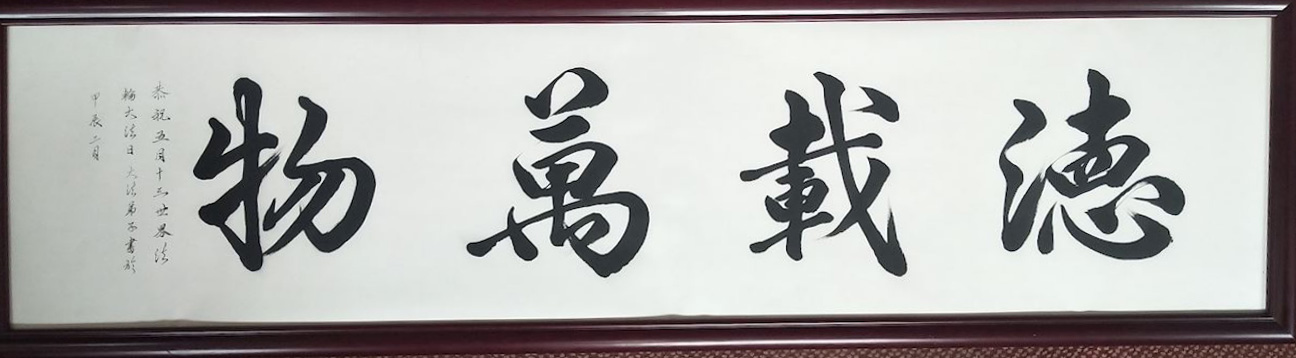 德載萬物
恭祝五月十三世界法
輪大法日大法弟子書於
甲辰二月